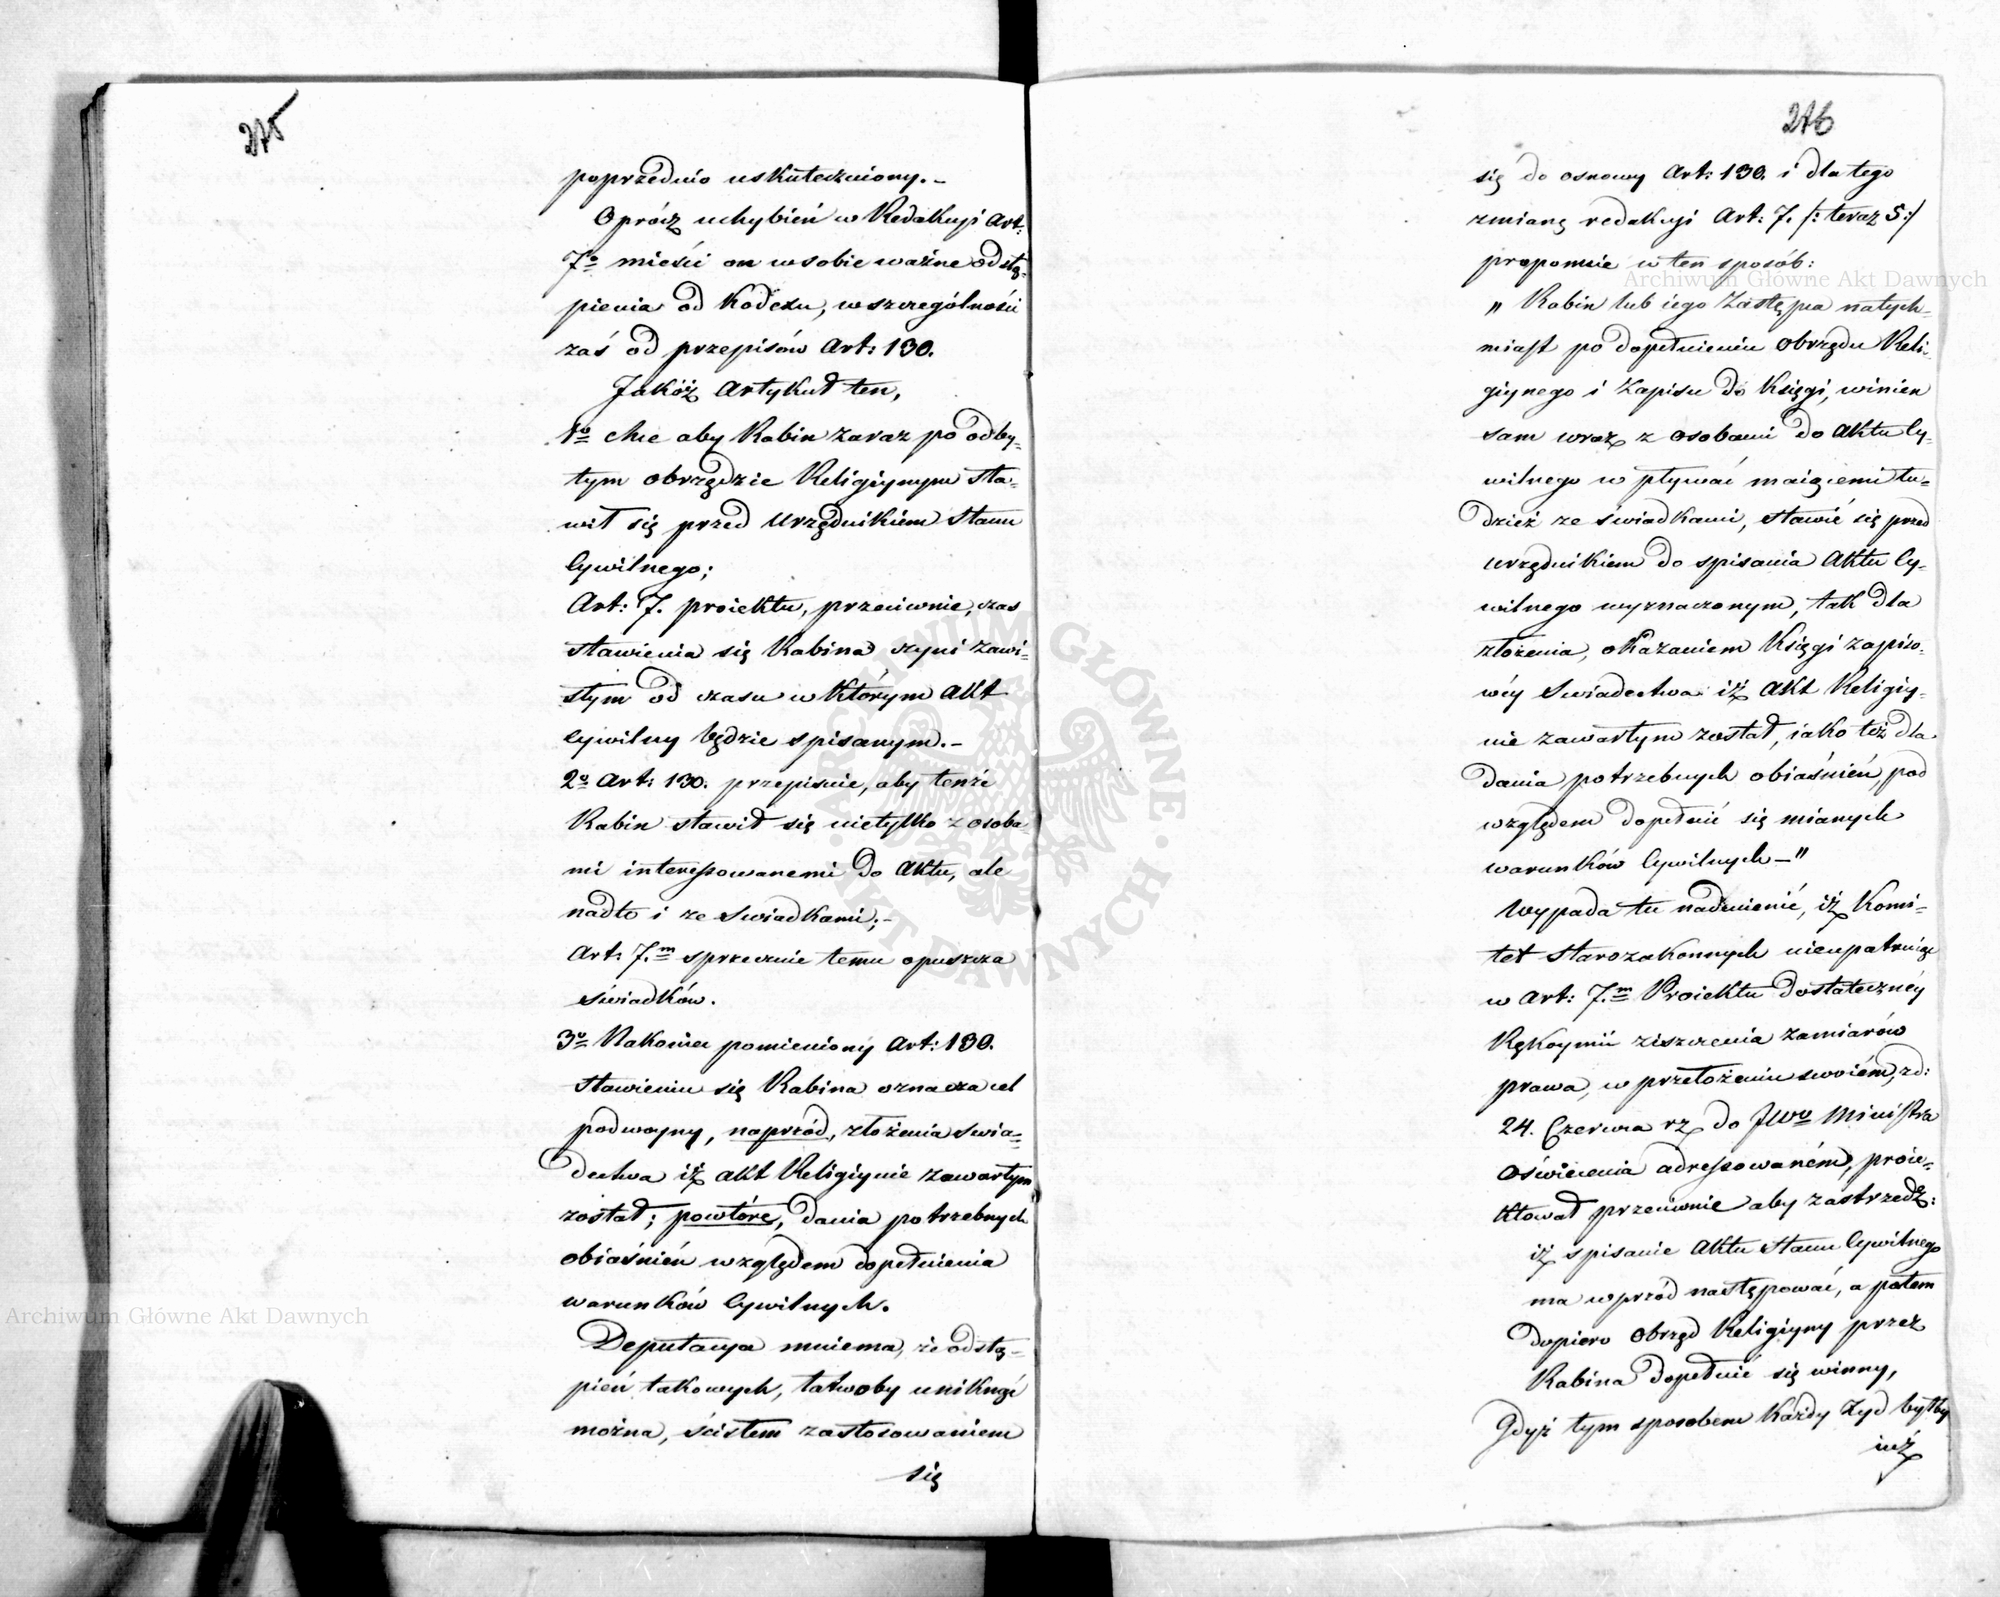 275
poprzednio uskuteczniony.-
Oprócz uchybień w Redakcyi Art:
7º mieści on w sobie ważne odstą-
pienia od Kodexu, w szczególności
zaś od przepisów Art: 130.
Jakóż Artykuł ten,
1º chce aby Rabin zaraz po odby-
tym obrzędzie Religiynym sta-
wił się przed Urzędnikiem Stanu
Cywilnego;
Art: 7. proiektu, przeciwnie, czas
stawienia się Rabina czyni zawi-
słym od czasu w którym Akt
Cywilny będzie spisanym.-
2º Art: 130. przepisuie, aby tenże
Rabin stawił się nietylko z osoba-
mi interessowanemi do Aktu, ale
nadto i ze Swiadkami;-
Art: 7.m sprzecznie temu opuszcza
świadków.
3º Nakoniec pomieniony Art: 130.
stawieniu się Rabina oznacza cel
podwoyny, naprzód, złożenia swia-
dectwa iż akt Religiynie zawartym
został; powtóre, dania potrzebnych
obiaśnień względem dopełnienia
warunków Cywilnych.
Deputacya mniema, że odstą-
pień takowych, łatwoby uniknąć
można, ścisłem zastosowaniem
się
276
się do osnowy Art: 130. i dla tego
zmianę redakcyi Art: 7. /: teraz 5:/
proponuie w ten sposób:
„ Rabin lub iego Zastępca natych-
miast po dopełnieniu obrzędu Reli-
giynego i Zapisu do Księgi, winien
sam wraz z osobami do Aktu Cy-
wilnego wpływać maiącemi tu-
dzież ze świadkami, stawić się przed
urzędnikiem do spisania Aktu Cy-
wilnego wyznaczonym, tak dla
złożenia, okazaniem Księgi zapiso-
wéy Swiadectwa iż Akt Religiy-
nie zawartym został, iako też dla
dania potrzebnych obiaśnień, pod
względem dopełnić się mianych
warunków Cywilnych-"
Wypada tu nadmienić, iż Komi-
tet Starozakonnych nieupatruiąc
w Art: 7.m Proiektu dostatecznéy
Rękoymii ziszczenia zamiarów
prawa, w przełożeniu swoiém, zd:
24. Czerwca rz do JWo Ministra
Oświecenia adressowaném, proie-
ktował przeciwnie aby zastrzedz:
iż spisanie Aktu stanu Cywilnego
ma wprzód następować, a potem
dopiero obrząd Religiyny przez
Rabina dopełnić się winny,
Gdyż tym sposobem każdy Żyd byłby
iuż
Archiwum Główne Akt Dawnych
Archiwum Główne Akt Dawnych
ARCHIWUM GŁÓWNE · AKT DAWNYCH ·